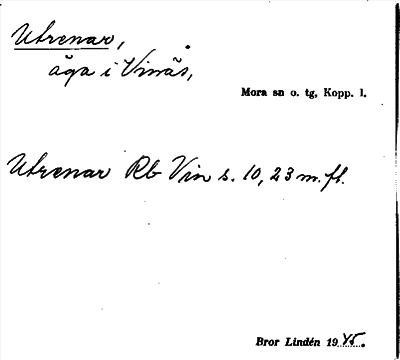 Utrenar,
äga i Vinäs,
Mora sn o. tg, Kopp. l.
Utrenar Rb Vin s. 10, 23 m. fl.
Bror Lindén 1945.